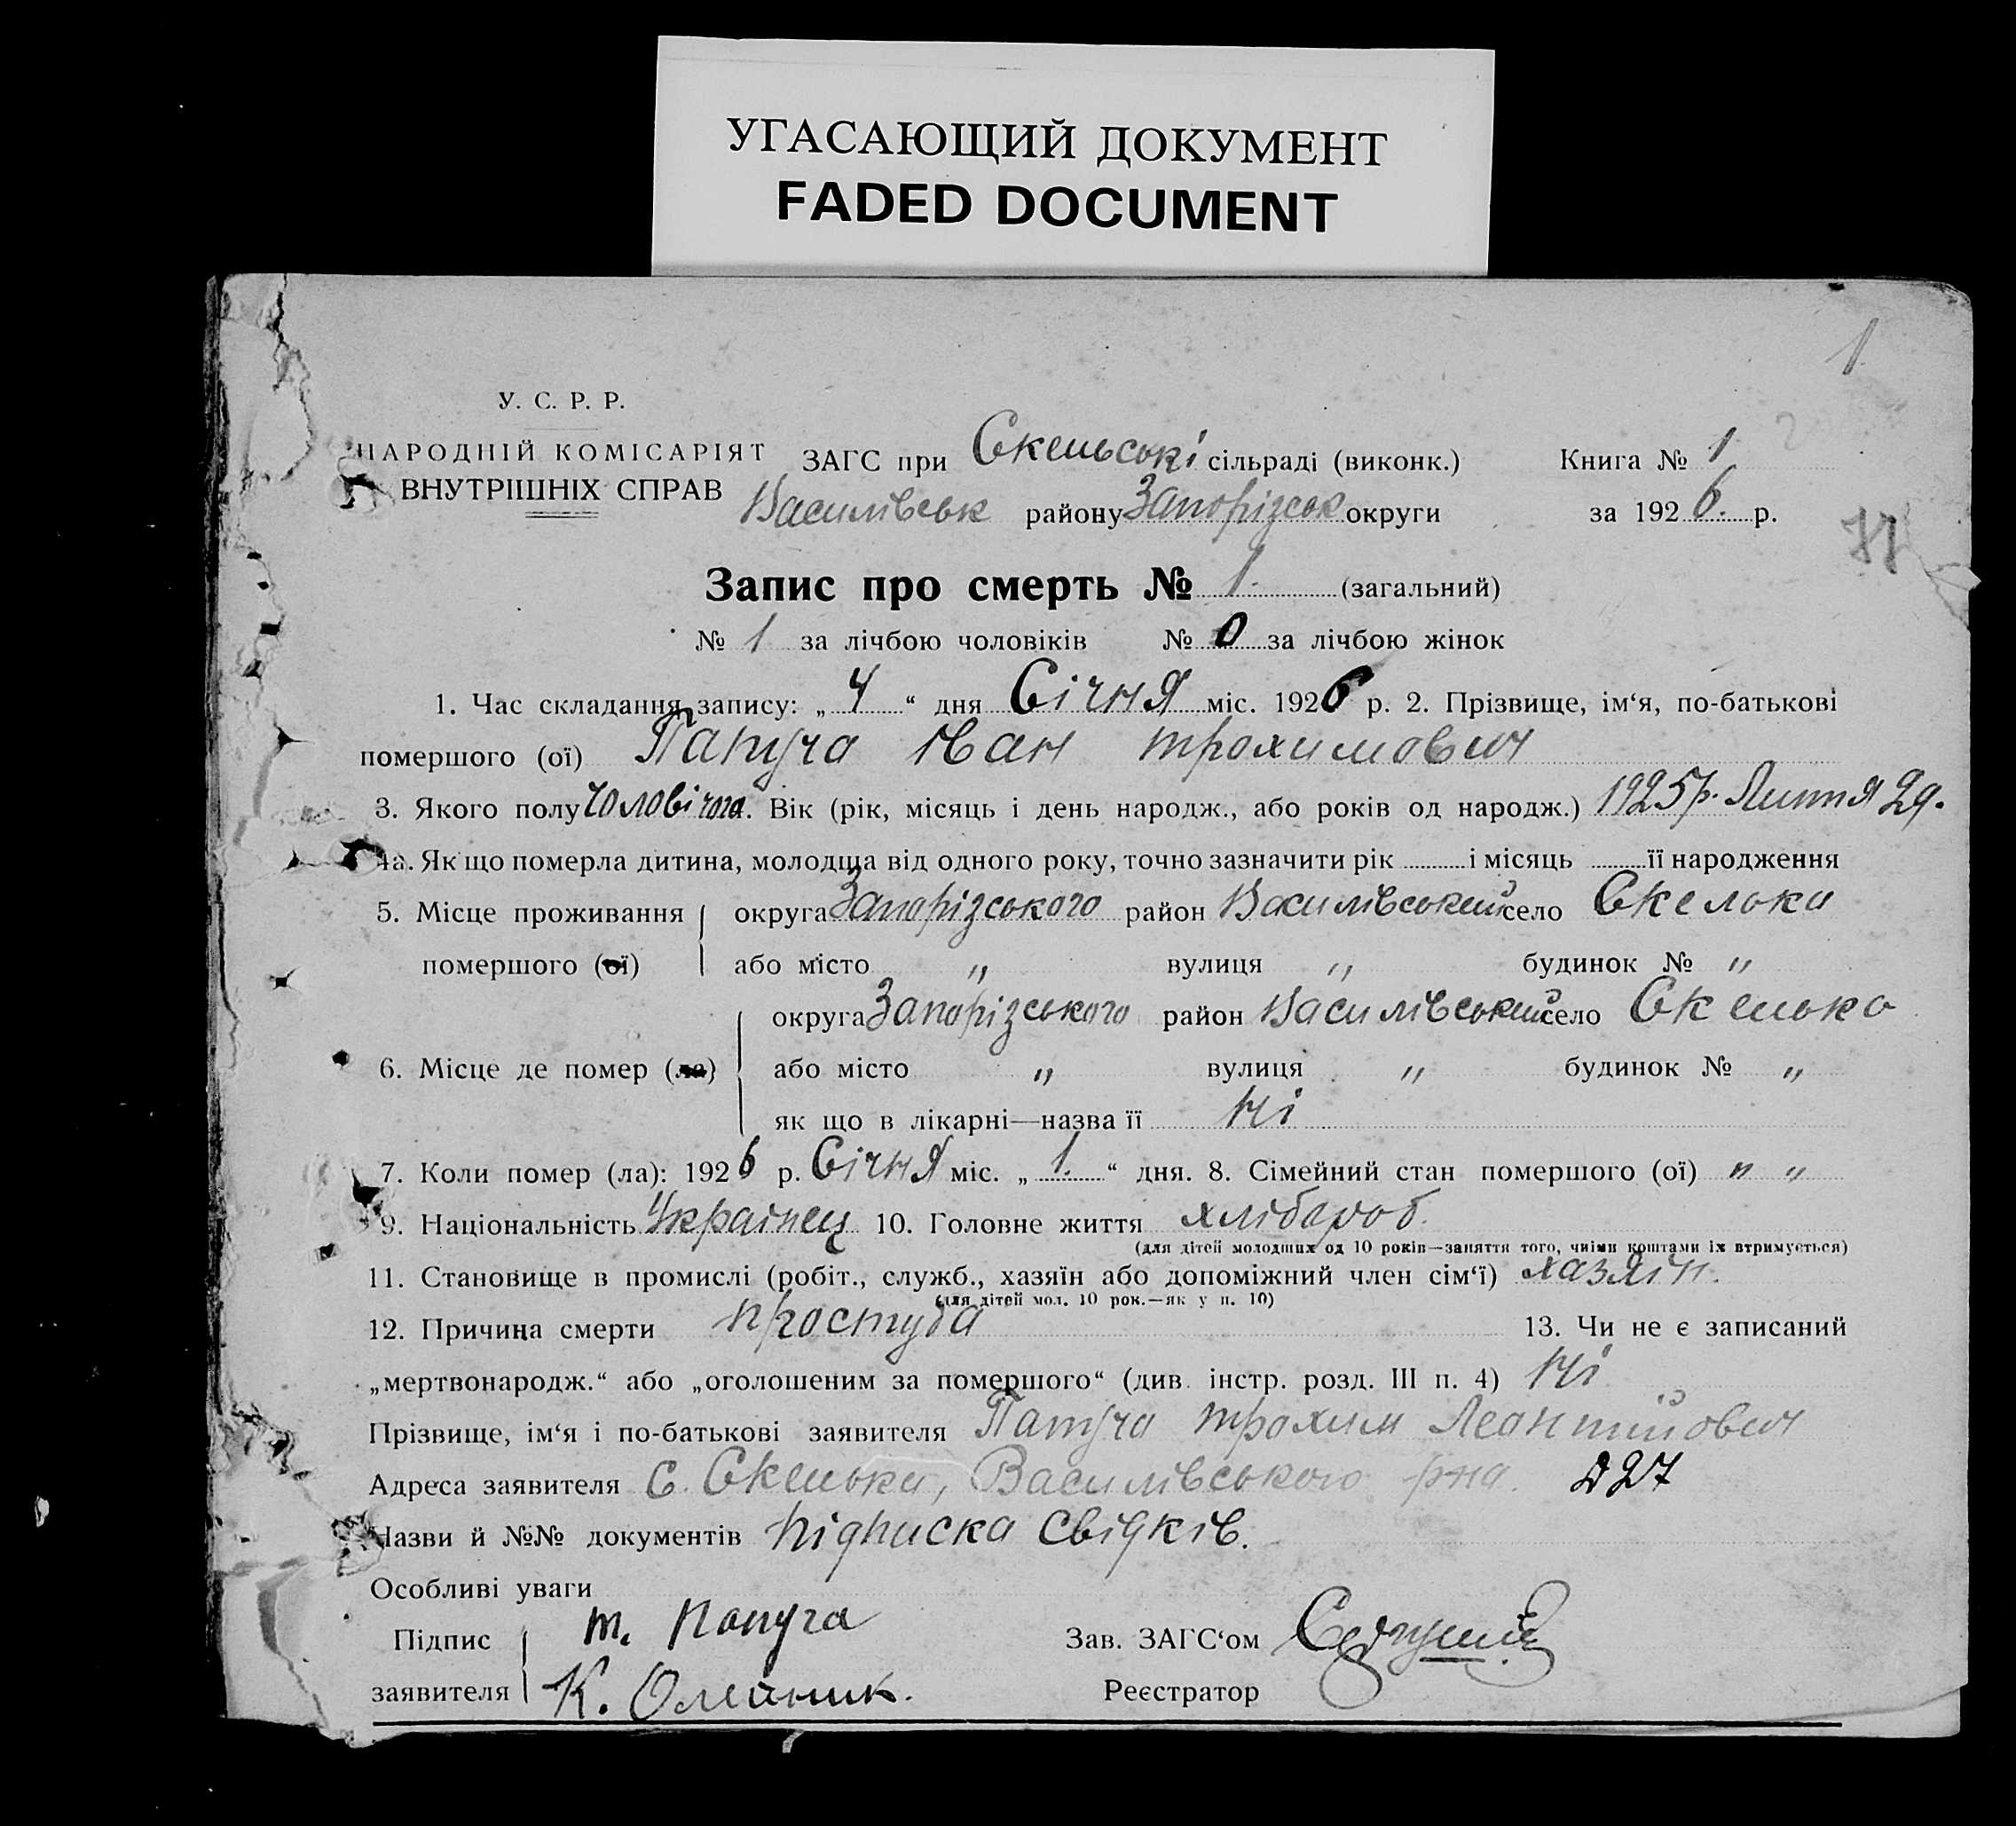 УГАСАЮЩИЙ ДОКУМЕНТ
FADED DOCUMENT
1
У. С. Р. Р.
НАРОДНІЙ КОМІСАРІЯТ
ВНУТРІШНІХ СПРАВ
ЗАГС при Скельські сільраді (виконк.)
Василівськ району Запорізськ округи
Книга № 1
за 1926. р.
Запис про смерть № 1. (загальний)
№ 1 за лічбою чоловіків № 0 за лічбою жінок
1. Час складання запису: „ 4 “ дня Січня міс. 1926 р. 2. Прізвище, ім‘я, по-батькові
помершого (ої) Папуча Іван трохимович
3. Якого полу чоловічого. Вік (рік, місяць і день народж., або років од народж.) 1925р. Липня 29.
4а. Як що померла дитина, молодша від одного року, точно зазначити рік і місяць її народження
5. Місце проживання округа Запорізського район Василівський село Скелька
помершого (ої) або місто " вулиця " будинок № "
округа Запорізського район Василівський село Скелька
6. Місце де помер (ла) або місто " вулиця " будинок № "
як що в лікарні—назва її Ні
7. Коли помер (ла): 1926 р. Січня міс. „ 1. “ дня. 8. Сімейний стан помершого (ої) " "
9. Національність Українец 10. Головне життя хлібароб.
(для дітей молодших од 10 років—заняття того, чиїми коштами їх втримується)
11. Становище в промислі (робіт., служб., хазяїн або допоміжний член сім‘ї) хазяїн.
(для дітей мол. 10 рок.—як у п. 10)
12. Причина смерти простуда 13. Чи не є записаний
„мертвонародж.“ або „оголошеним за помершого“ (див. інстр. розд. III п. 4) Ні
Прізвище, ім‘я і по-батькові заявителя Папуча трохим Леонтійович
Адреса заявителя С. Скелька, Василівського рна. 27
Назви й №№ документів підписка свідків.
Особливі уваги
Підпис т. Папуга Зав. ЗАГС‘ом
заявителя К. Олейник. Реєстратор